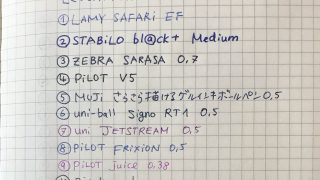 ① LAMY SAFARI EF
② STABiLO bl@ck+ Medium
③ ZEBRA SARASA 0,7
④ PiLOT V5
⑤ MUJi さらさら描けるゲルインキボールペン 0,5
⑥ uni-ball Signo RT1 0,5
⑦ uni JETSTREAM 0,5
⑧ PiLOT FRiXiON 0,5
⑨ PiLOT juice 0,38